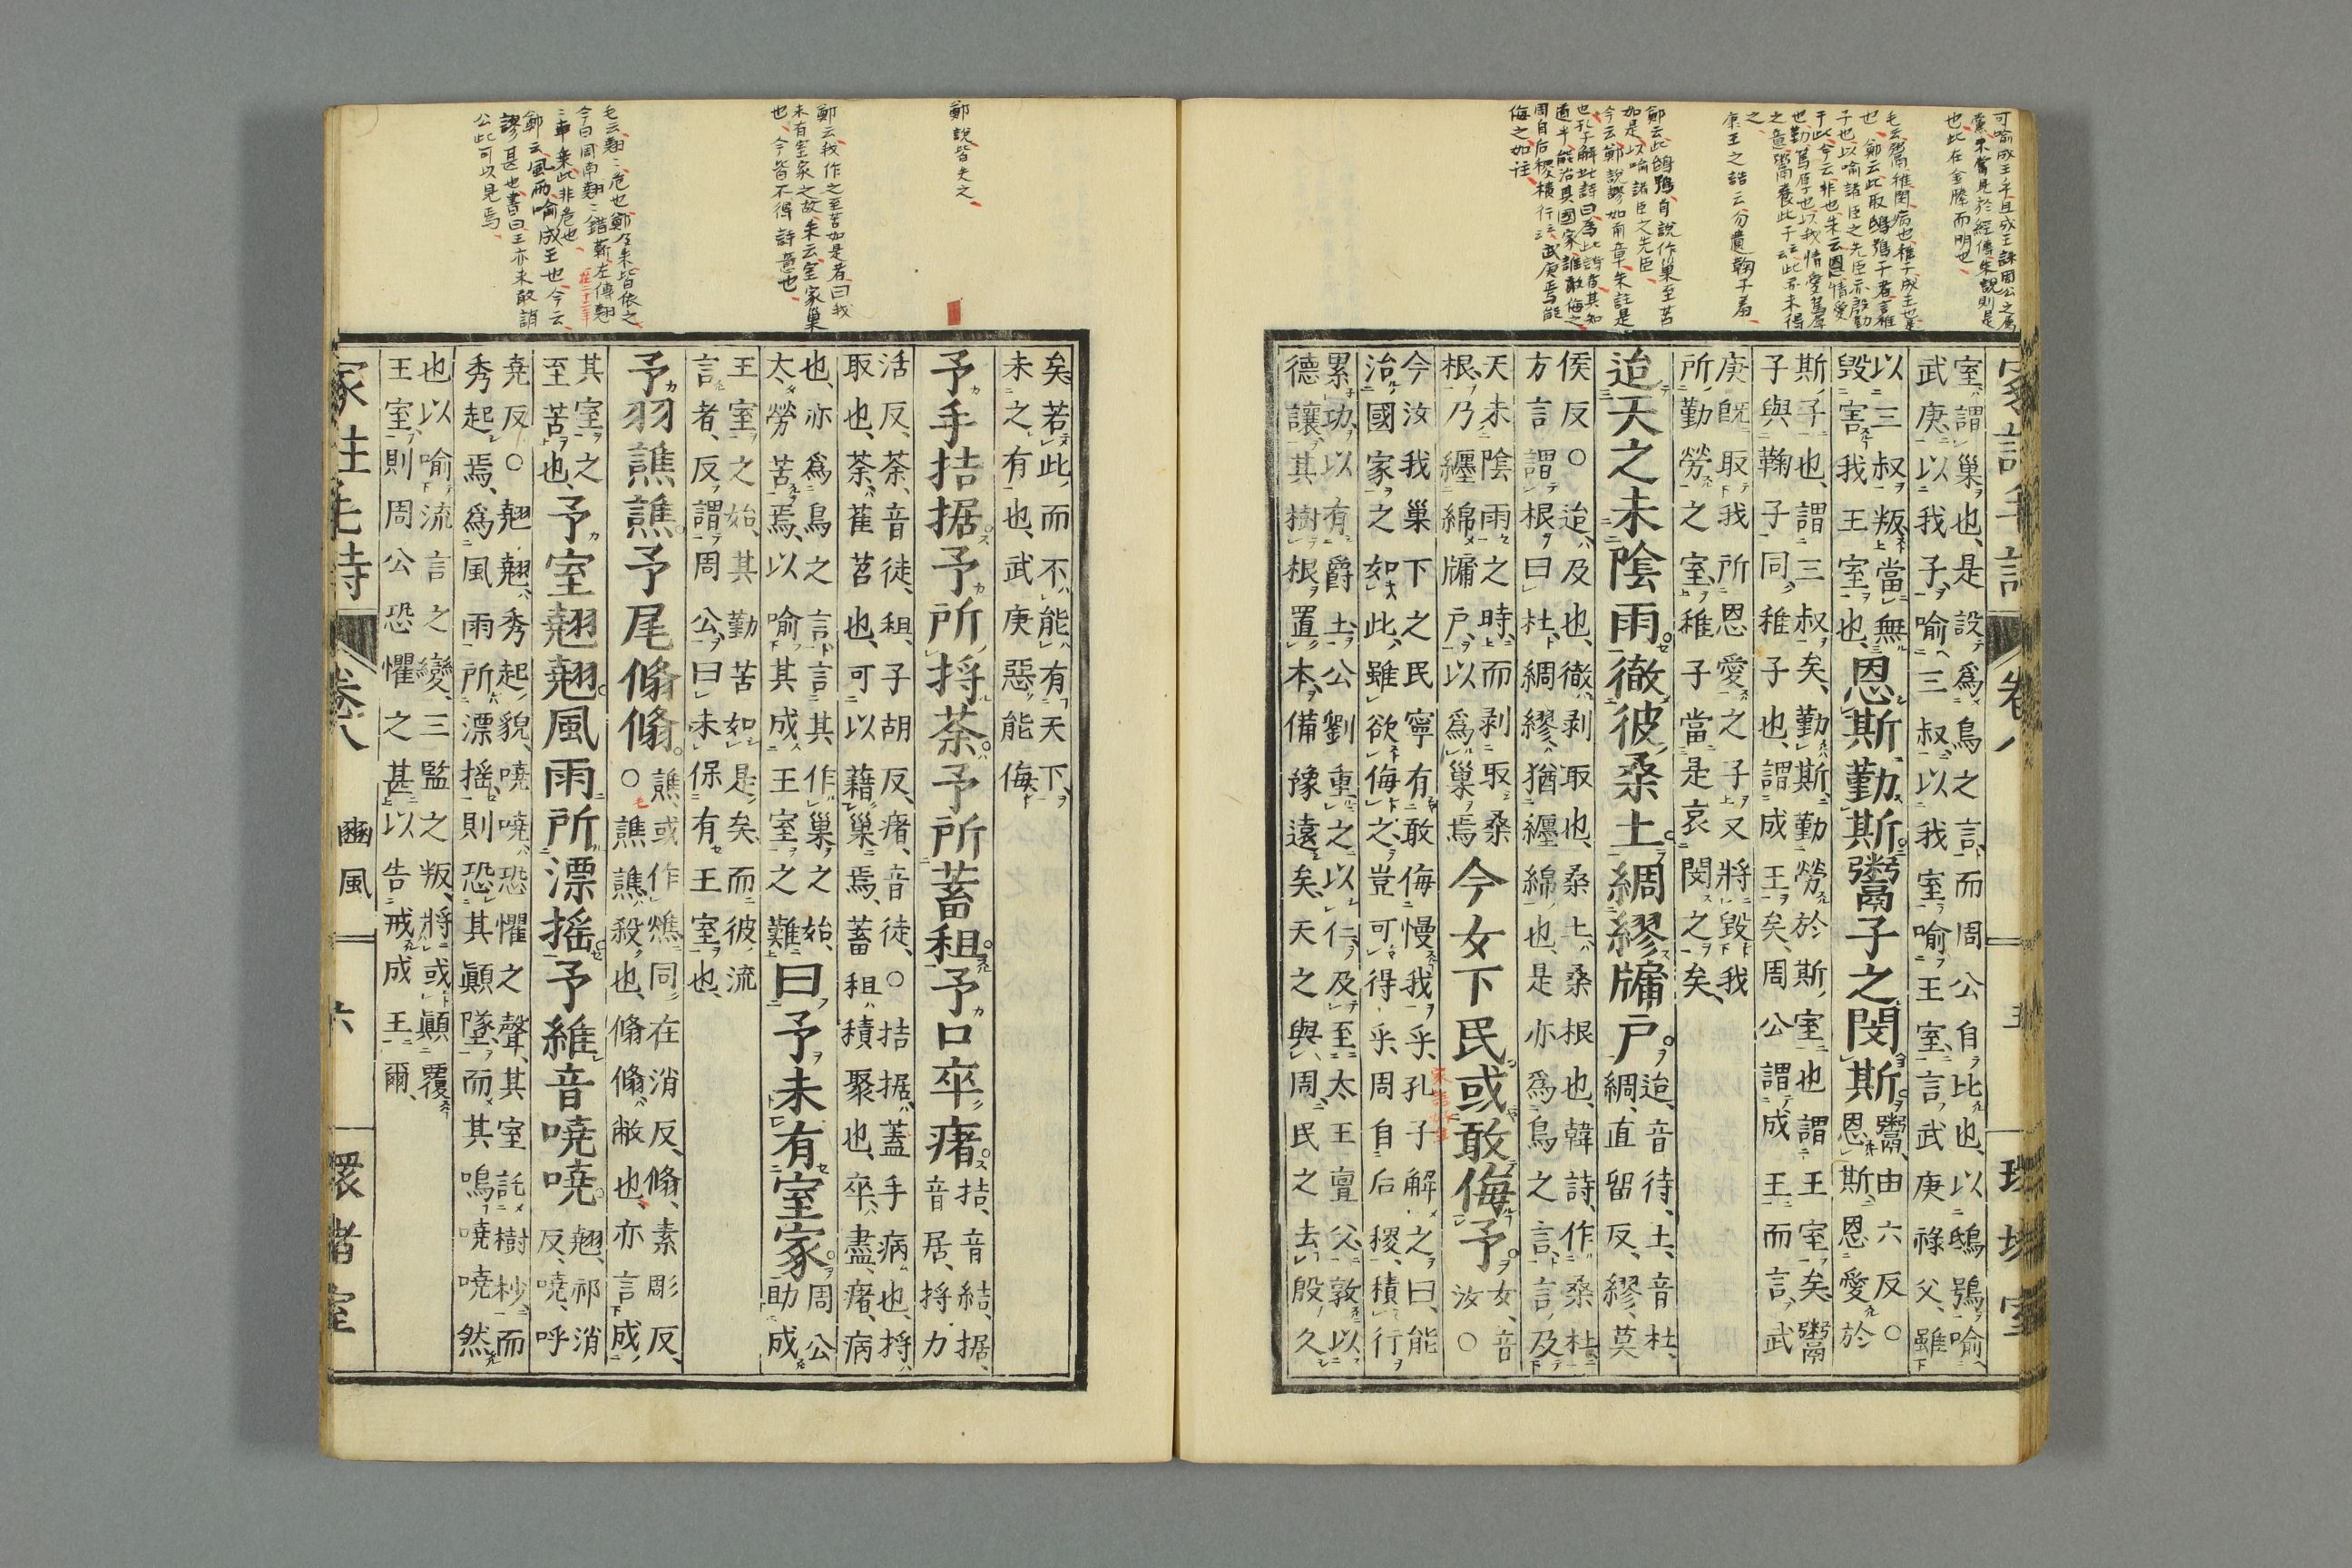 可喩成王乎且成王誅周公之屬
黨不嘗見於經傳朱説則是
也此在金縢而明也
毛云鬻稚閔病也稚子成王也
也鄭云此取鴟鴞子者言稚
子也以喩諸臣之先臣亦殷勤
于此今云非也朱云恩情愛
也勤篤厚也以我情愛篤厚
之意鬻養此子云此亦未得
之
康王之誥云分遺鞠子羞
鄭云此鴟鴞自説作巢至苦
如是以喩諸臣之先臣
今云鄭説謬如前章朱註是
也孔子解此詩曰爲此詩者其知
道乎能治其國家誰敢侮之
周自后稷積行云云武庚焉能
侮之如注
室謂巢也、是設爲鳥之言、而周公自比也、以鴟鴞喻
武庚、以我子、喻三叔、以我室、喻王室、言武庚祿父、雖
以三叔叛、當無
毀害我王室也、
恩斯勤斯鬻子之閔斯
鬻、由六反、○
恩斯恩愛於
斯子也、謂三叔矣、勤斯勤勞於斯室也謂王室矣、鬻
子與鞠子同、稚子也、謂成王矣、周公謂成王而言、武
庚既取我所恩愛之子、又將毀我
所勤勞之室、稚子當是哀閔之矣、
迨天之未陰雨徹彼桑土綢繆牖戶
迨、音待、土、音杜、
綢、直留反、繆、莫
侯反○迨、及也、徹、剥取也、桑土、桑根也、韓詩、作桑杜
方言謂根曰杜、綢繆、猶纒綿也、是亦爲鳥之言、言及
天未陰雨之時、而剥取桑
根、乃纒綿牖戶、以爲巢焉
今女下民或敢侮予
女、音
汝○
今汝我巢下之民寧有敢侮慢我乎、孔子解之曰、能
治國家之如此、雖欲侮之、豈可得乎、周自后稷、積行
累功、以有爵土、公劉重之以仁、及至太王亶父、敦以
德讓、其樹根置本、備豫遠矣、天之與周、民之去殷久
卷八
鄭説皆失之
鄭云我作之至苦如是者曰我
未有室家之故朱云室家巢
也、今皆不得詩意也
毛云翹ミ危也鄭及朱皆依之
今曰周南翹ミ錯薪左傳翹
ミ車乘此非危也
鄭云風雨喩成王也今云
謬甚也書曰王亦未敢誚
公此可以見焉
矣、若此、而不能有天下、
未之有也、武庚惡能侮
予手拮据予所捋荼予所蓄租予口卒瘏
拮、音結、据、
音居、捋力
活反、荼、音徒、租、子胡反、瘏、音徒、○拮据、蓋手病也、捋、
取也、荼、萑苕也、可以藉巢焉、蓄租、積聚也、卒、盡、瘏、病
也、亦爲鳥之言、言其作巢之始、
太勞苦焉、以喻其成王室之難
曰予未有室家
周公
助成
王室之始、其勤苦如是矣、而彼流
言者、反謂周公曰未保有王室也、
予羽譙譙予尾翛翛
○譙、或作燋同、在消反、翛、素彫反、
譙譙、殺也、翛翛、敝也、亦言成
其室之
至苦也、
予室翹翹風雨所漂摇予維音嘵嘵
翹、祁消
反、嘵、呼
堯反○翹翹、秀起貌、嘵嘵、恐懼之聲、其室託樹杪、而
秀起焉、爲風雨所漂摇、則恐其顚墜、而其鳴嘵嘵然
也以喻流言之變、三監之叛、將或顚覆
王室、則周公恐懼之甚、以告戒成王爾、
家註毛詩
卷八
豳風
六
環堵室